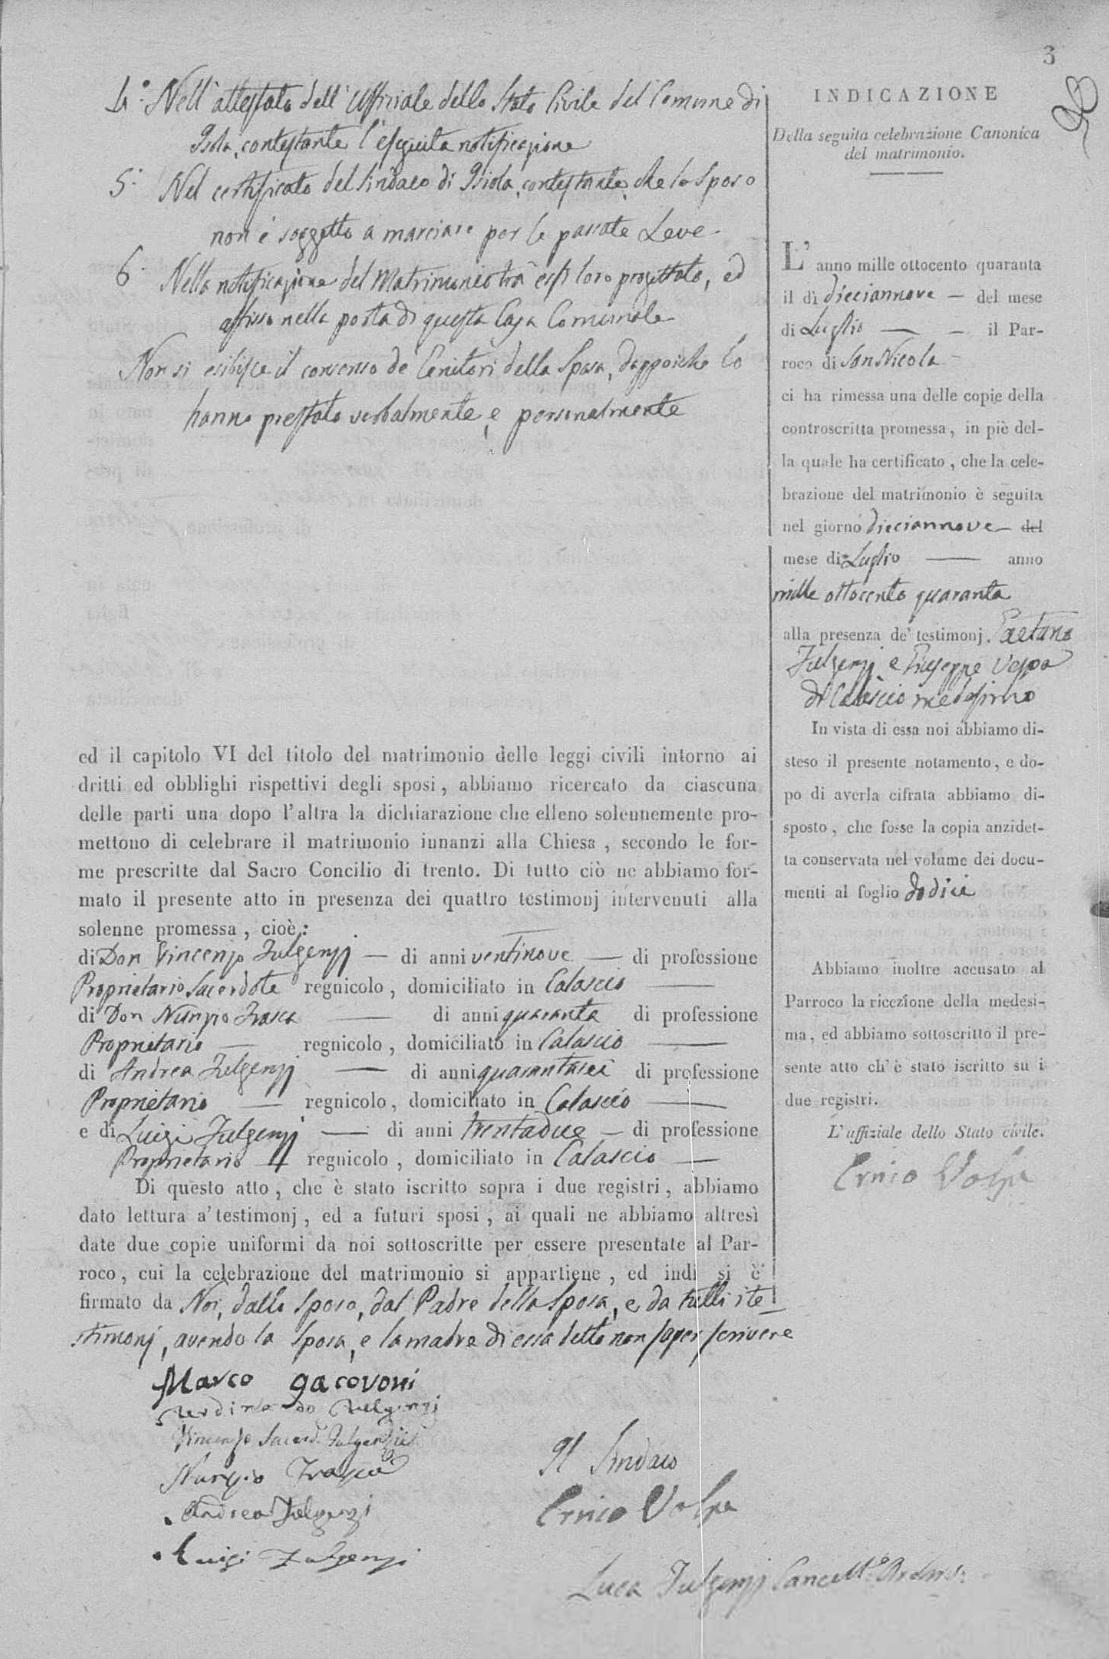 3
4.° Nell'attestato dell'Ufficiale dello Stato Civile del Comune di
Isola, contestante l'eseguita notificazione
5.° Nel certificato del Sindaco di Isola, contestante, che lo Sposo
non è soggetto a marciare per le passate Leve.
6.° Nella notificazione del Matrimonio tra essi loro progettato, ed
affisso nella porta di questa Casa Comunale
Non si esibisce il consenso de' Genitori della Sposa, dappoiche lo
hanno prestato verbalmente, e personalmente
ed il capitolo VI del titolo del matrimonio delle leggi civili intorno ai
dritti ed obblighi rispettivi degli sposi, abbiamo ricercato da ciascuna
delle parti una dopo l'altra la dichiarazione che elleno solennemente pro-
mettono di celebrare il matrimonio innanzi alla Chiesa, secondo le for-
me prescritte dal Sacro Concilio di trento. Di tutto ciò ne abbiamo for-
mato il presente atto in presenza dei quattro testimonj intervenuti alla
solenne promessa, cioè:
di Don Vincenzo Fulgenzj — di anni ventinove — di professione
Proprietario Sacerdote regnicolo, domiciliato in Calascio —
di Don Nunzio Frasca — di anni quaranta di professione
Proprietario — regnicolo, domiciliato in Calascio —
di Andrea Fulgenzj — di anni quarantasei di professione
Proprietario — regnicolo, domiciliato in Calascio —
e di Luigi Fulgenzj — di anni trentadue — di professione
Proprietario regnicolo, domiciliato in Calascio —
Di questo atto, che è stato iscritto sopra i due registri, abbiamo
dato lettura a' testimonj, ed a futuri sposi, ai quali ne abbiamo altresì
date due copie uniformi da noi sottoscritte per essere presentate al Par-
roco, cui la celebrazione del matrimonio si appartiene, ed indi si è
firmato da Noi, dallo Sposo, dal Padre della Sposa, e da tutti i te-
stimonj, avendo la Sposa, e la madre di essa detto non saper scrivere
Marco Jacovoni
Ferdinando Fulgenzj
Vincenzo Sacerd. Fulgenzj
Nunzio Frasca
Andrea Fulgenzj
Luigi Fulgenzj
Il Sindaco
Ernico Volpe
Luca Fulgenzj Cancell.
INDICAZIONE
Della seguita celebrazione Canonica
del matrimonio.
L'anno mille ottocento quaranta
il dì dieciannove — del mese
di Luglio — — il Par-
roco di San Nicola —
ci ha rimessa una delle copie della
controscritta promessa, in piè del-
la quale ha certificato, che la cele-
brazione del matrimonio è seguita
nel giorno dieciannove — del
mese di Luglio — anno
mille ottocento quaranta
alla presenza de' testimonj. Gaetano
Fulgenzj e Giuseppe Volpe
di Calascio medesimo
In vista di essa noi abbiamo di-
steso il presente notamento, e do-
po di averla cifrata abbiamo di-
sposto, che fosse la copia anzidet-
ta conservata nel volume dei docu-
menti al foglio dodici
Abbiamo inoltre accusato al
Parroco la ricezione della medesi-
ma, ed abbiamo sottoscritto il pre-
sente atto ch'è stato iscritto su i
due registri.
L'uffiziale dello Stato civile.
Ernico Volpe